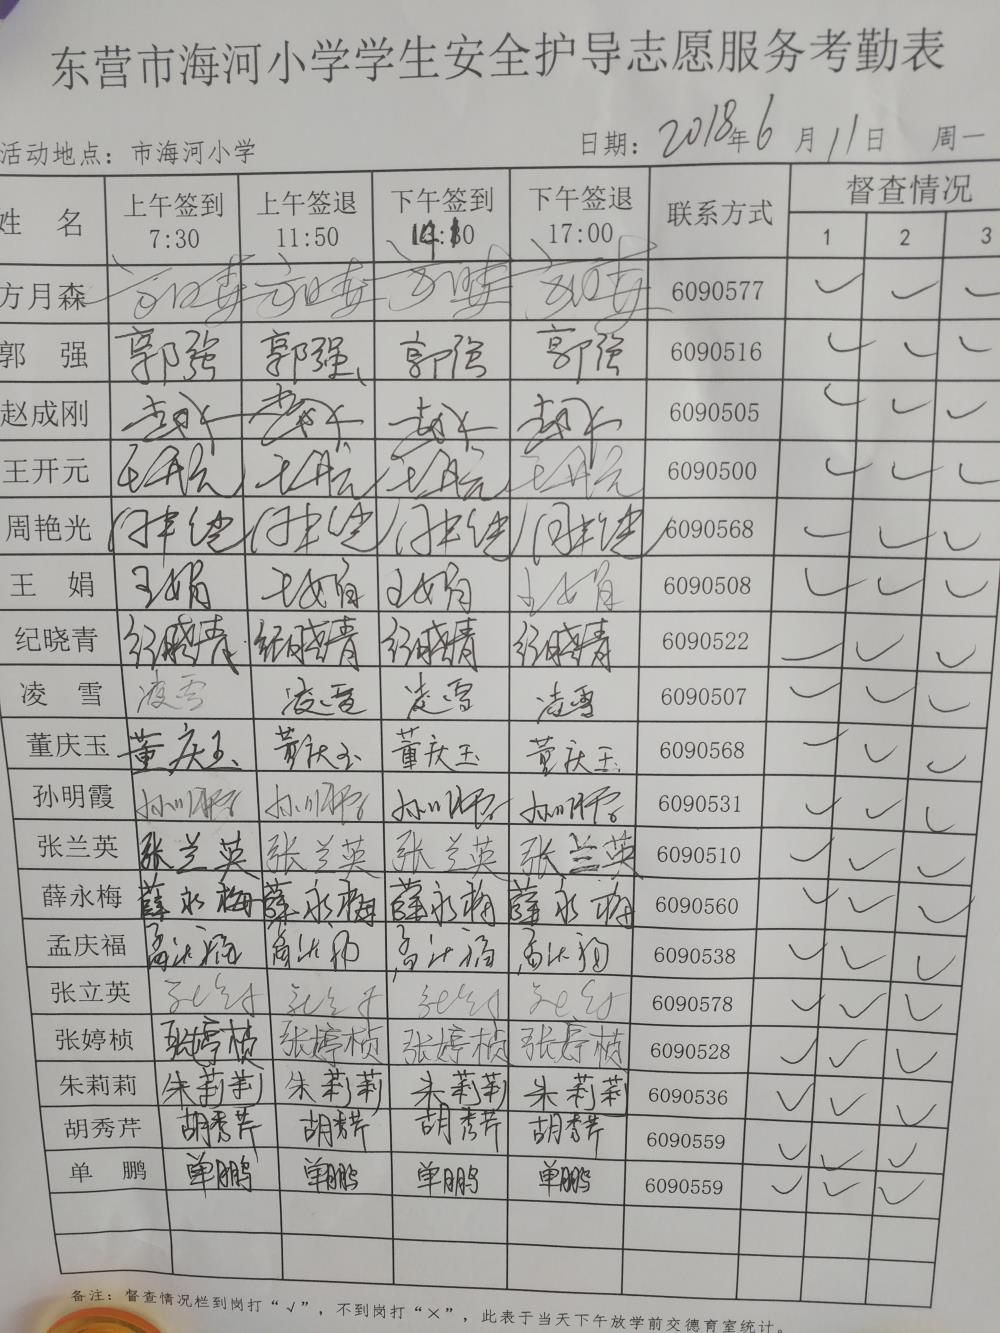 东营市海河小学学生安全护导志愿服务考勤表
活动地点：市海河小学 日期：2018年6月11日 周一
姓 名 上午签到 7:30 上午签退 11:50 下午签到 下午签退 17:00 联系方式 督查情况
1 2 3
方月森 6090577 ✓ ✓ ✓
郭 强 郭强 郭强 郭强 郭强 6090516 ✓ ✓ ✓
赵成刚 6090505 ✓ ✓ ✓
王开元 王开元 王开元 王开元 王开元 6090500 ✓ ✓ ✓
周艳光 6090568 ✓ ✓ ✓
王 娟 王娟 王娟 王娟 王娟 6090508 ✓ ✓ ✓
纪晓青 纪晓青 纪晓青 纪晓青 纪晓青 6090522 ✓ ✓ ✓
凌 雪 凌雪 凌雪 凌雪 凌雪 6090507 ✓ ✓ ✓
董庆玉 董庆玉 董庆玉 董庆玉 董庆玉 6090568 ✓ ✓ ✓
孙明霞 6090531 ✓ ✓ ✓
张兰英 张兰英 张兰英 张兰英 张兰英 6090510 ✓ ✓ ✓
薛永梅 薛永梅 薛永梅 薛永梅 薛永梅 6090560 ✓ ✓ ✓
孟庆福 6090538 ✓ ✓ ✓
张立英 6090578 ✓ ✓ ✓
张婷桢 张婷桢 张婷桢 张婷桢 张婷桢 6090528 ✓ ✓ ✓
朱莉莉 朱莉莉 朱莉莉 朱莉莉 朱莉莉 6090536 ✓ ✓ ✓
胡秀芹 胡秀芹 胡秀芹 胡秀芹 胡秀芹 6090559 ✓ ✓ ✓
单 鹏 单鹏 单鹏 单鹏 单鹏 6090559 ✓ ✓ ✓
备注：督查情况栏到岗打“√”，不到岗打“×”，此表于当天下午放学前交德育室统计。